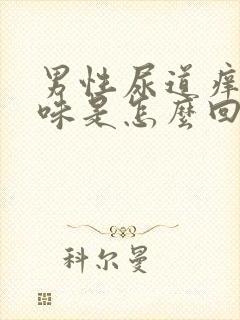 男性尿道痒
味是怎麽回
科尔曼